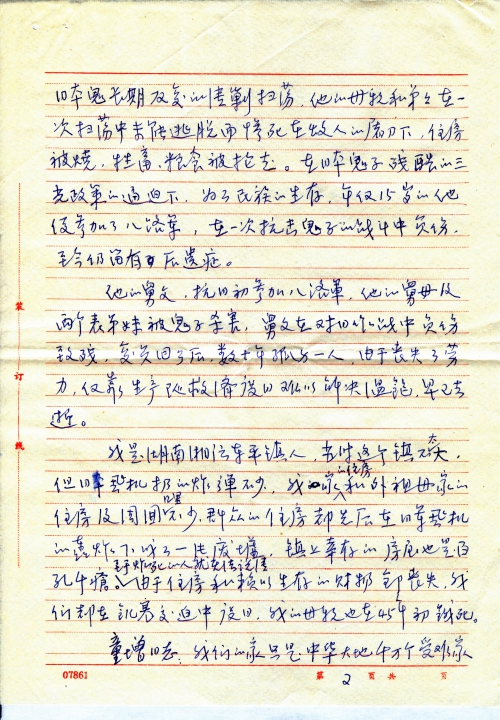 日本鬼长期反复的清剿扫荡，他的母亲和弟弟在一
次扫荡中未能逃脱而惨死在敌人的屠刀下，住房
被烧，牲畜、粮食被抢走。在日本鬼子残酷的三
光政策的逼迫下，为了民族的生存，年仅15岁的他
便参加了八路军，在一次抗击鬼子的战斗中负伤，
至今仍留有后遗症。
他的舅父，抗日初参加八路军，他的舅母及
两个表弟妹被鬼子杀害，舅父在对日作战中负伤
致残，复员回了后，数十年孤身一人，由于丧失了劳
力，仅靠生产队救济度日难以解决温饱，早已去
逝。
我是湖南湘 镇人，当时这个镇不太大，
但日军飞机扔的炸弹不少，我家的住房和外祖母家的
住房及周围不少群众的住房都先后在日军飞机
的轰炸下成了一片废墟，镇上幸存的房屋也是百
孔千疮。至于炸死的人就
由于住房和赖以生存的财物都丧失，我
们都在饥寒交迫中度日，我的母亲也在45年初饿死。
童增同志，我们的家只是中华大地千万个受难家
07861
第 2 页共 页
装
订
线